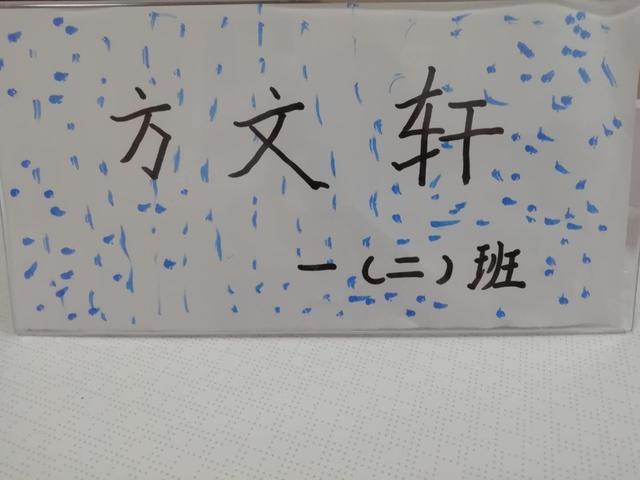 方文轩
一（二）班